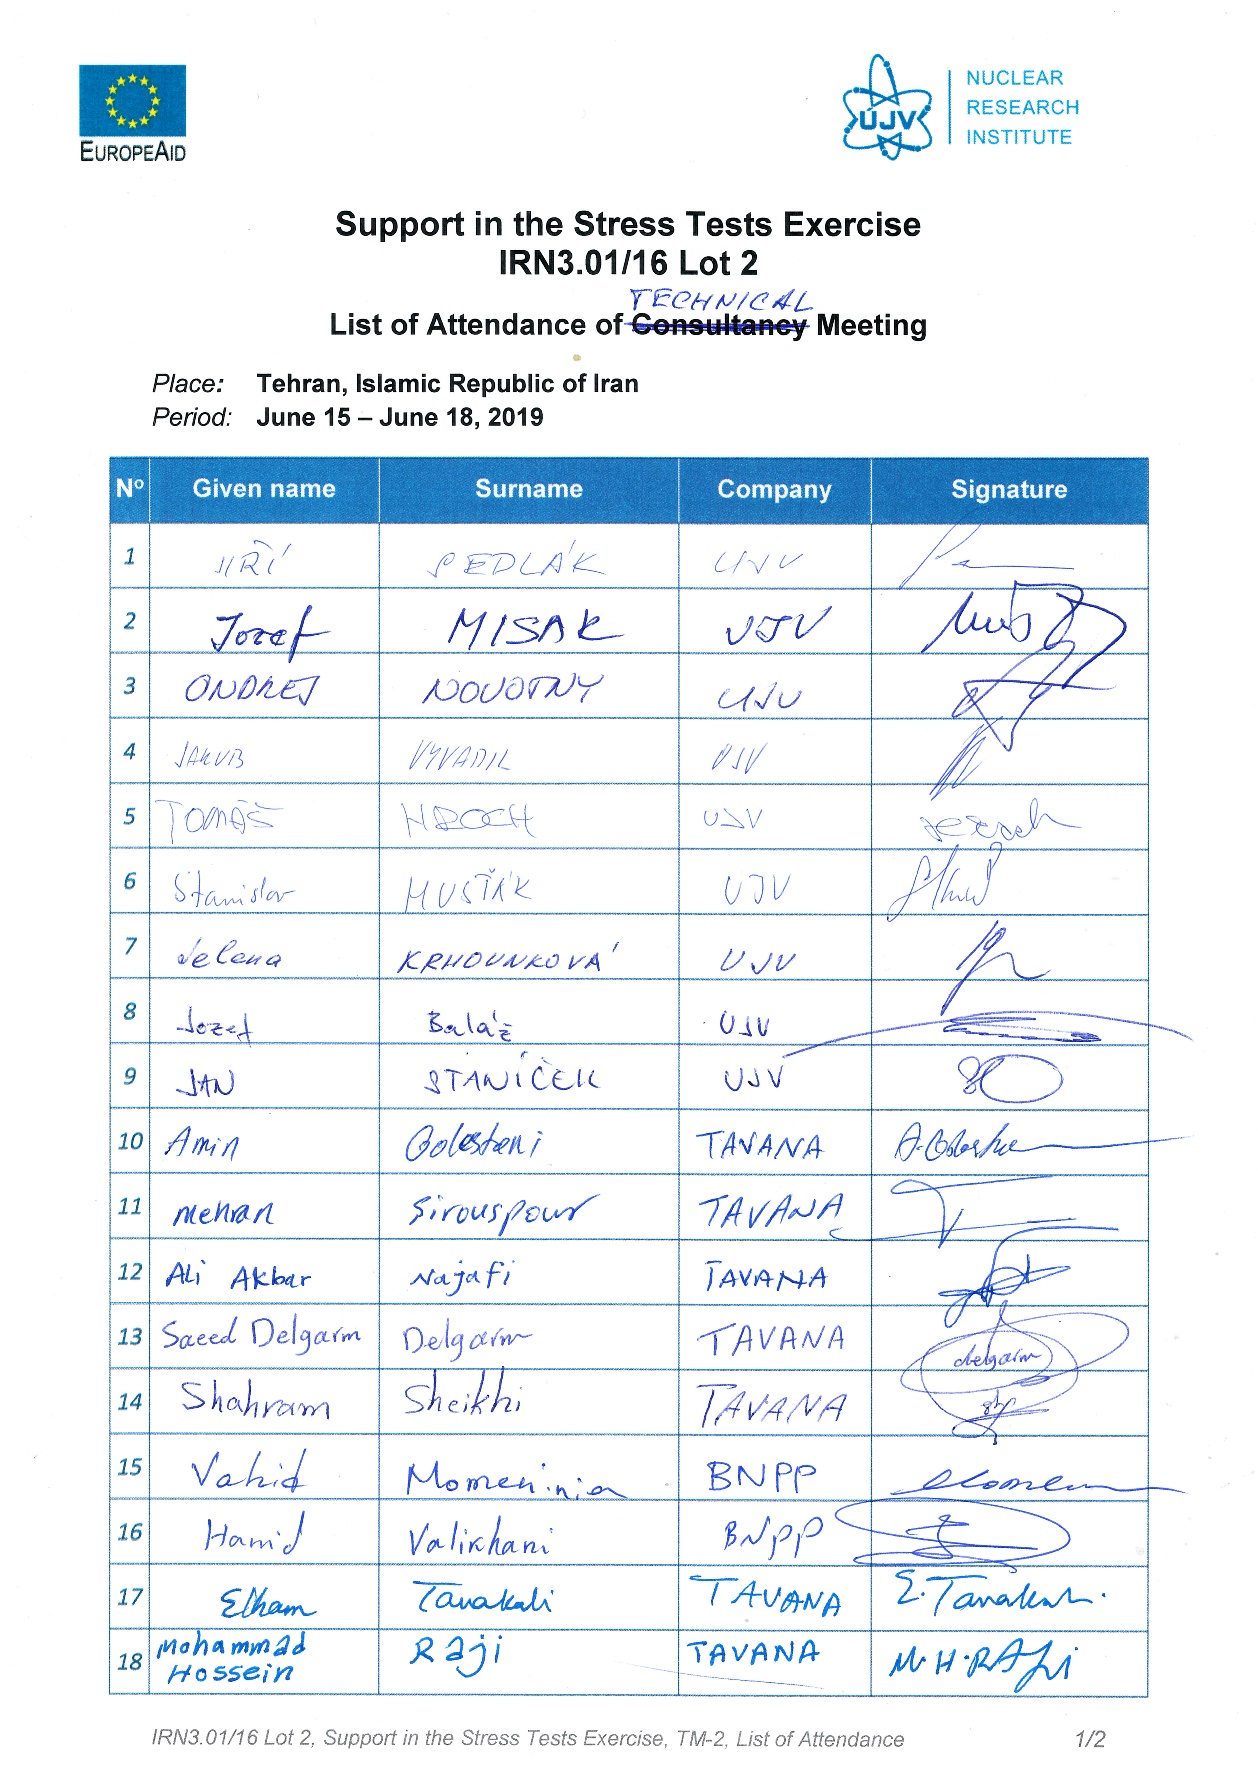 EUROPEAID
ÚJV
NUCLEAR
RESEARCH
INSTITUTE
Support in the Stress Tests Exercise
IRN3.01/16 Lot 2
TECHNICAL
List of Attendance of Consultancy Meeting
Place: Tehran, Islamic Republic of Iran
Period: June 15 – June 18, 2019
Nº Given name Surname Company Signature
1 JIŘÍ SEDLÁK UJV
2 Jozef MISAK UJV
3 ONDREJ NOVOTNY UJV
4 JAKUB VYVADIL UJV
5 TOMÁŠ HROCH UJV
6 Stanislav HUSŤÁK UJV
7 Jelena KRHOUNKOVÁ UJV
8 Jozef Baláž UJV
9 JAN STANÍČEK UJV
10 Amin Golestani TAVANA
11 Mehran Sirouspour TAVANA
12 Ali Akbar Najafi TAVANA
13 Saeed Delgarm Delgarm TAVANA delgarm
14 Shahram Sheikhi TAVANA
15 Vahid Momeninia BNPP
16 Hamid Valikhani BNPP
17 Elham Tavakoli TAVANA
18 Mohammad Hossein Raji TAVANA M.H.RAJi
IRN3.01/16 Lot 2, Support in the Stress Tests Exercise, TM-2, List of Attendance 1/2